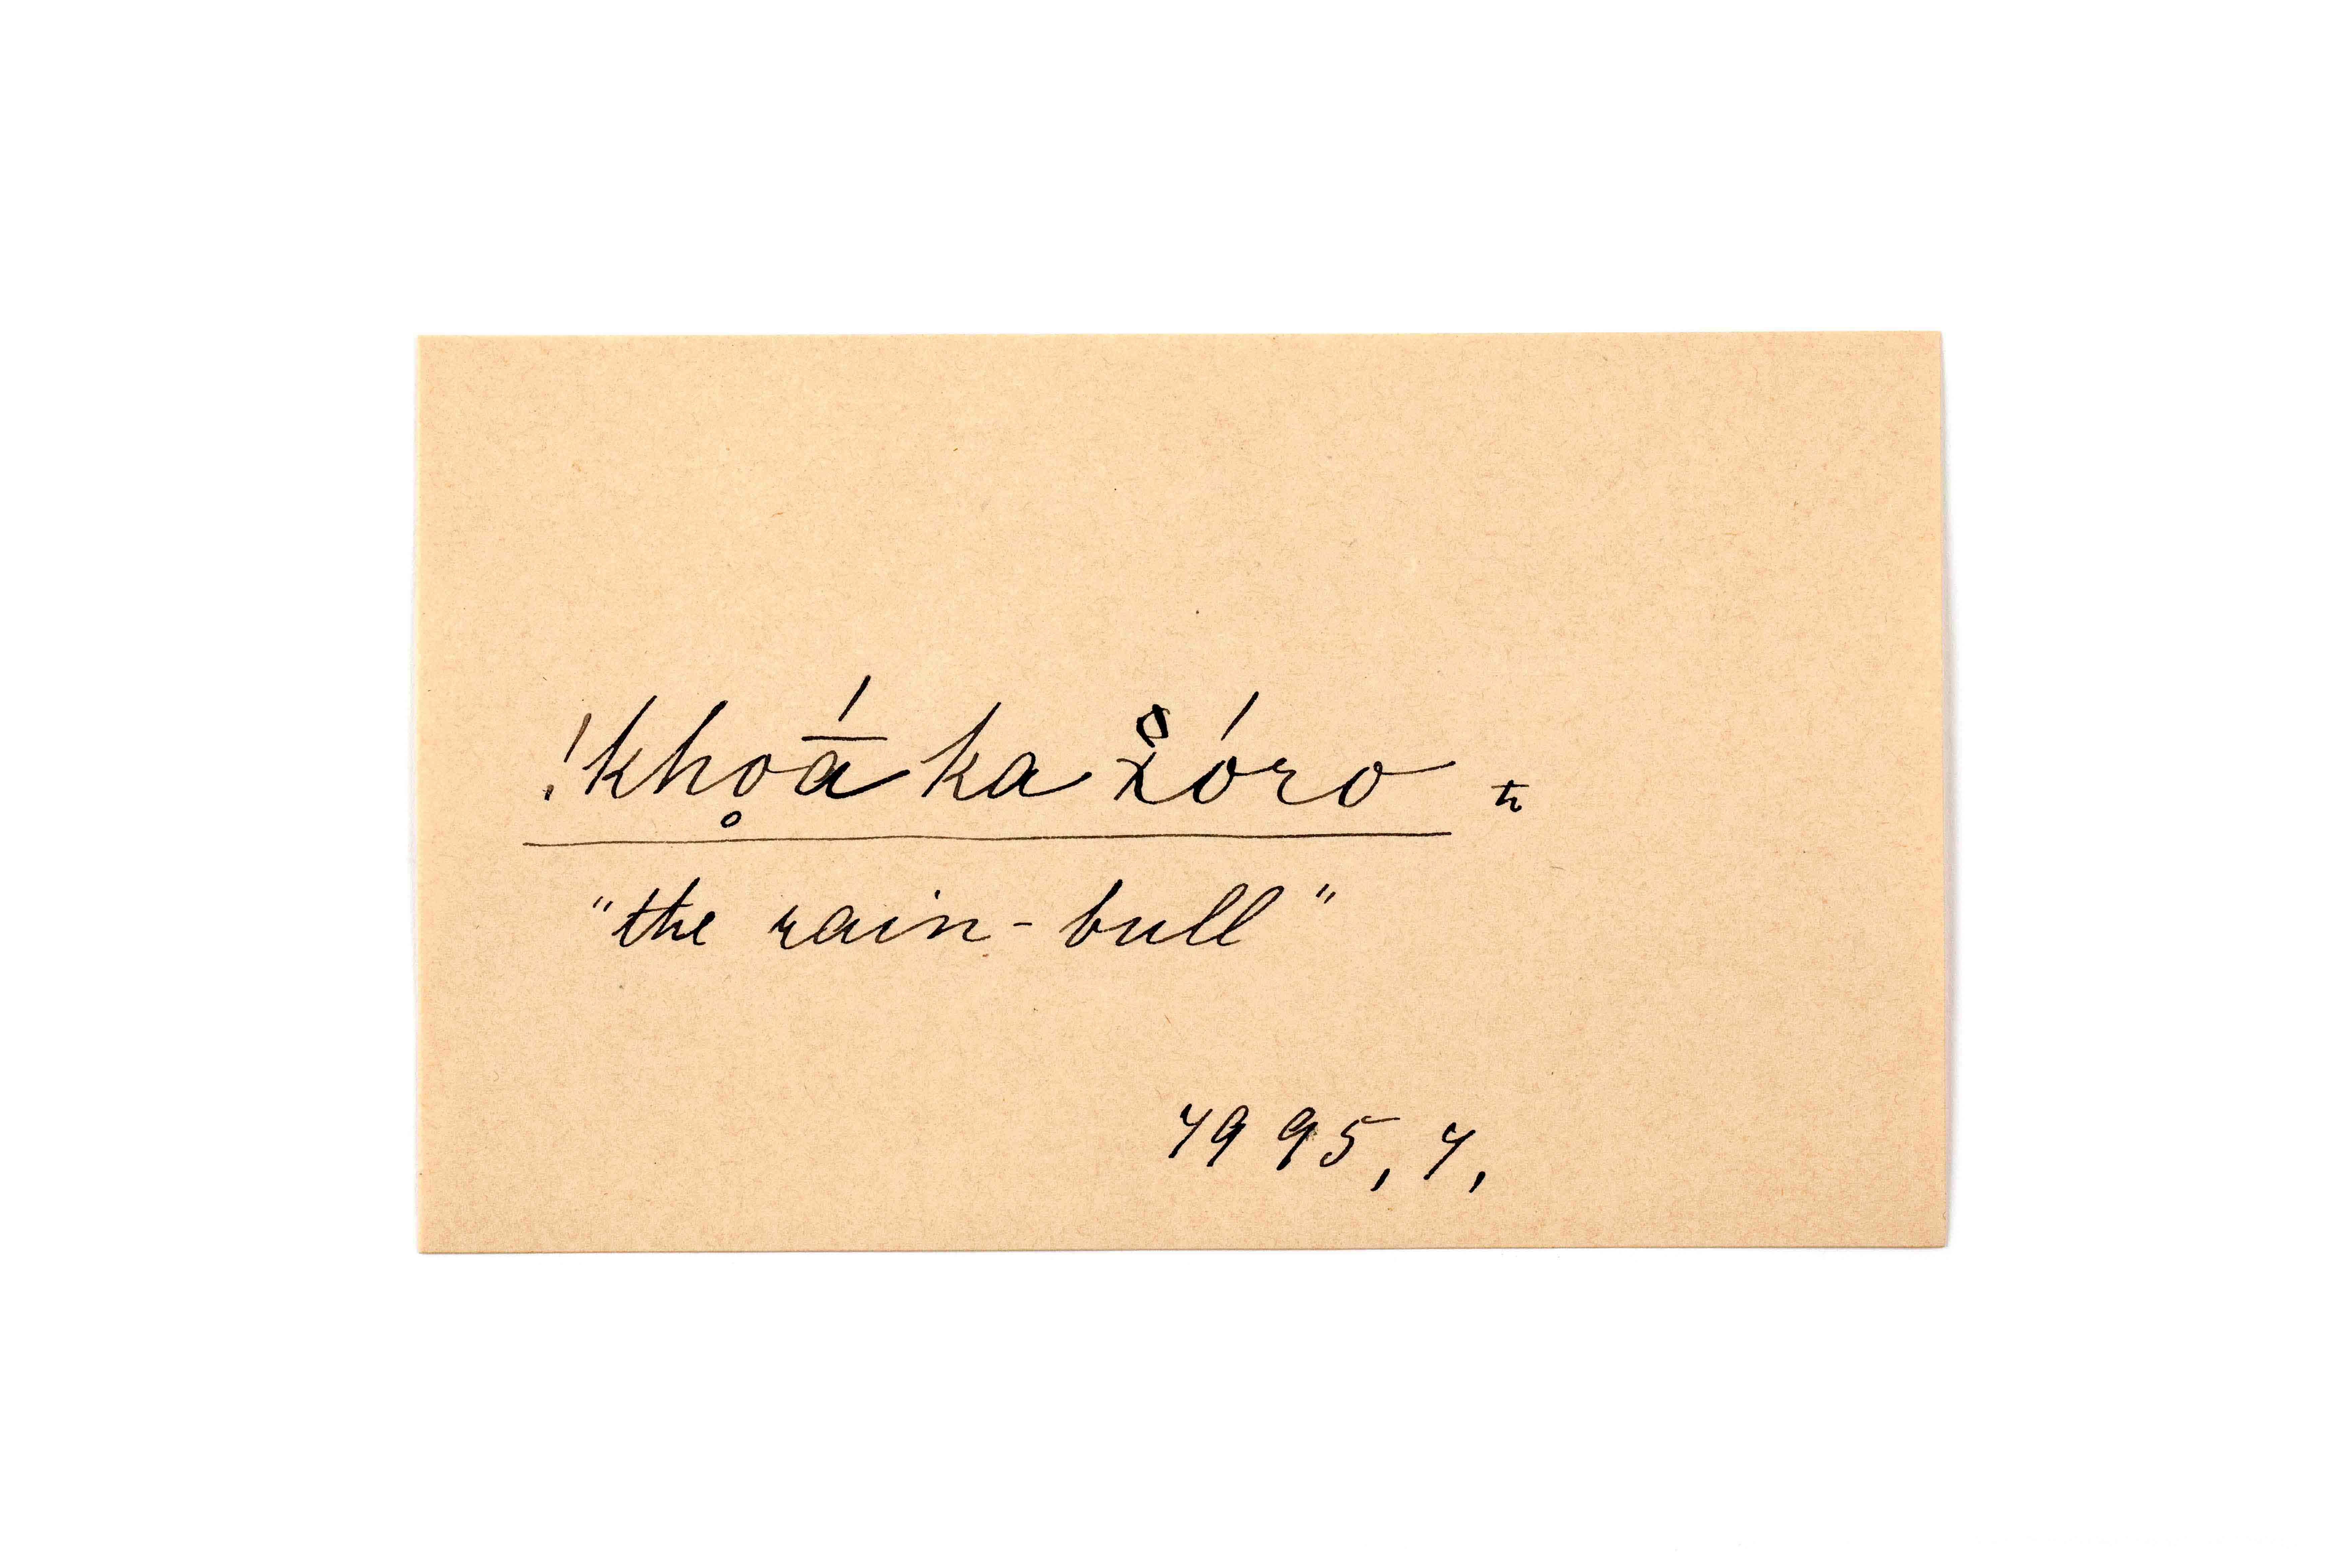 !kho̥ā́ ka x̊óro ħ
"the rain-bull"
7995, 7,